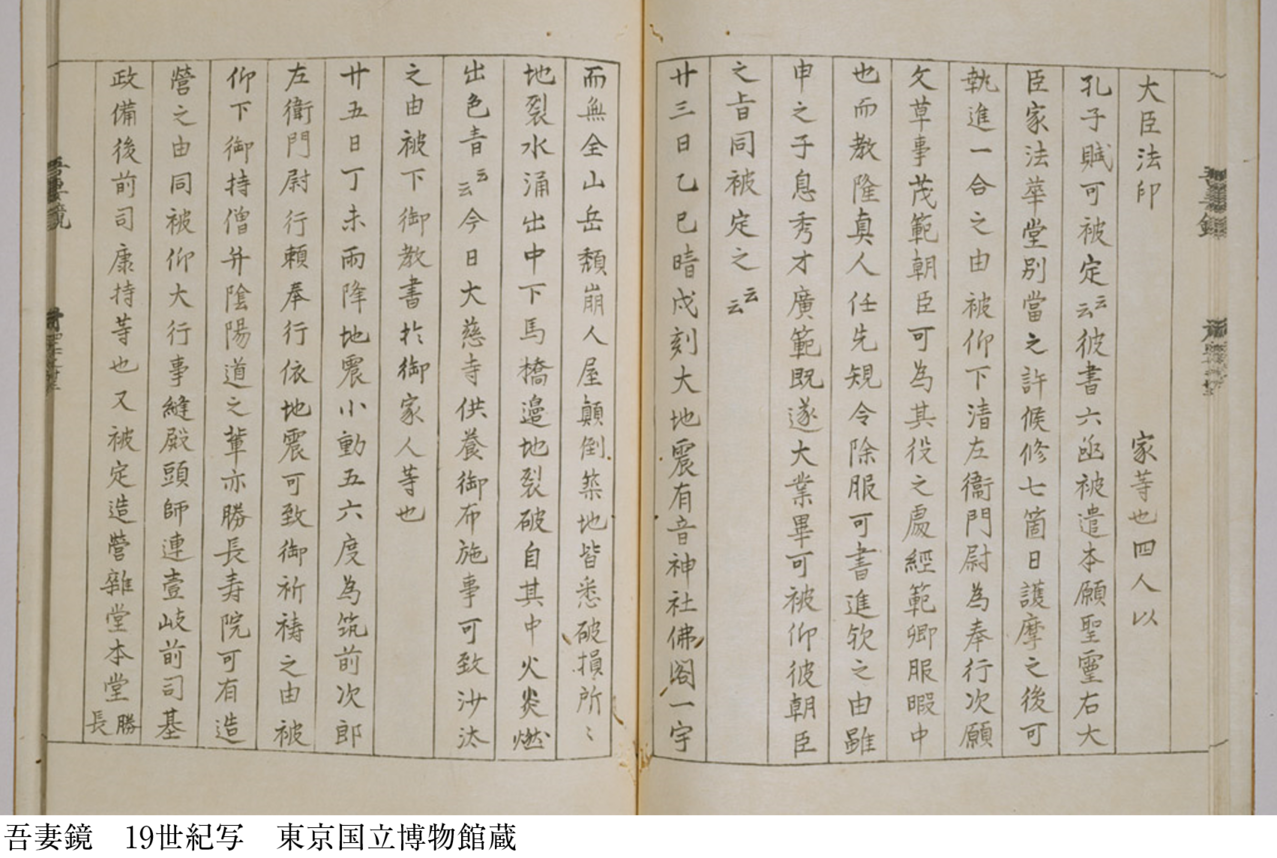 大臣法印　家等也四人以
孔子賦可被定云云彼書六函被遣本願聖霊右大
臣家法華堂別當之許候修七箇日護摩之後可
執進一合之由被仰下清左衛門尉為奉行次願
文草事茂範朝臣可為其役之處經範卿服暇中
也而教隆真人任先規令除服可書進欤之由雖
申之子息秀才廣範既遂大業畢可被仰彼朝臣
之旨同被定之云云
廿三日乙巳晴戌刻大地震有音神社佛閣一宇
而無全山岳頽崩人屋顛倒築地皆悉破損所〻
地裂水涌出中下馬橋邉地裂破自其中火炎燃
出色青云云今日大慈寺供養御布施事可致沙汰
之由被下御教書於御家人等也
廿五日丁未雨降地震小動五六度為筑前次郎
左衛門尉行頼奉行依地震可致御祈祷之由被
仰下御持僧并陰陽道之輩亦勝長寿院可有造
營之由同被仰大行事縫殿頭師連壹岐前司基
政備後前司康持等也又被定造營雜堂本堂勝長
吾妻鏡　19世紀写　東京国立博物館蔵